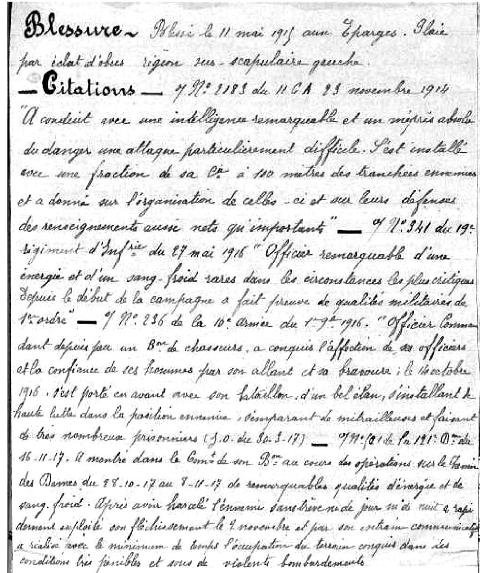 Blessure_ Blessé le 11 mai 1915 aux Eparges. Plaie
par éclat d'obus région sus-scapulaire gauche.
— Citations — O/ N° 2183 du 11 CA 23 novembre 1914
"A conduit avec une intelligence remarquable et un mépris absolu
du danger une attaque particulièrement difficile. S'est installé
avec une fraction de sa Cie à 100 mètres des tranchées ennemies
et a donné sur l'organisation de celles-ci et sur leurs défenses
des renseignements aussi nets qu'importants" — O/ N° 341 du 19e
régiment d'Infrie du 27 mai 1916 "Officier remarquable d'une
énergie et d'un sang-froid rares dans les circonstances les plus critiques
Depuis le début de la campagne a fait preuve de qualités militaires de
1er ordre" — O/ N° 236 de la 10e armée du 1916. "Officier Comman
dant depuis peu un Bon de chasseurs, a conquis l'affection de ses officiers
et la confiance de ses hommes par son allant et sa bravoure; le 14 octobre
1916, s'est porté en avant avec son bataillon, d'un bel élan, s'installant de
haute lutte dans la position ennemie, s'emparant de mitrailleuses et faisant
de très nombreux prisonniers (J.O. du 30.3.17) — O/ N° de la Don du
16.11.17. A montré dans le Comt de son Bon au cours des opérations sur le Chemin
des Dames, du 28.10.17 au 8-11-17 de remarquables qualités d'énergie et de
sang froid. Après avoir harcelé l'ennemi sans trêve ni de jour ni de nuit a rapi
dement exploité son fléchissement le 2 novembre et par son entrain communicatif
a réalisé avec le minimum de temps l'occupation du terrain conquis dans des
conditions très pénibles et sous de violents bombardements